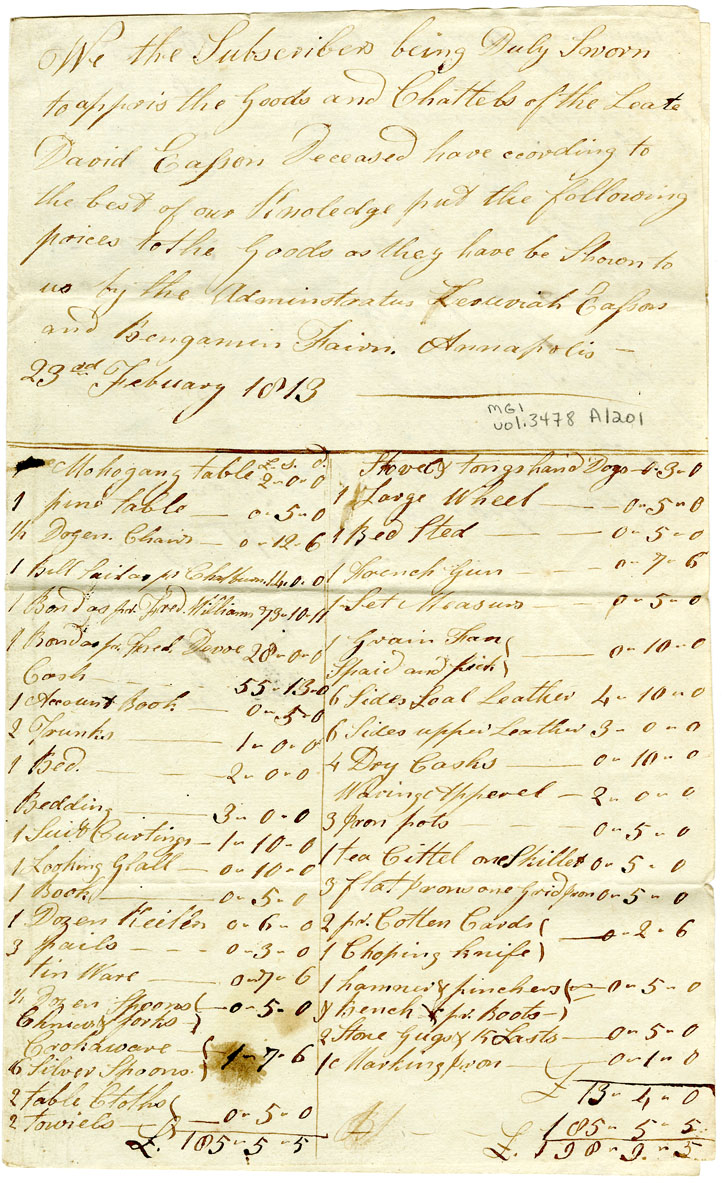 We the Subscribers being Duly Sworn
to appris the Goods and Chattels of the Leate
David Easson Deceased have ecording to
the best of our Knoledge put the following
prices to the Goods as they have be Shown to
us by the Adminstratus Zeruiah Easson
and Bengamin Fairn. Annapolis —
23rd Febuary 1813
MG1
vol. 3478 A1201
£. s. d.
Mohogany table 2-0-0
1 pine table — 0-5-0
½ Dozen Chairs — 0-12-6
1 Bill Said as pr 14-0-0
1 Bond as pr. Fred. Williams 73-10-11
1 Bond as pr. Fred. 28-0-0
Cash — 55-13-0
1 Account Book — 0-5-0
2 Trunks — 1-0-0
1 Bed. — 2-0-0
Bedding — 3-0-0
1 Suit Curtings - 1-10-0
1 Looking Glass — 0-10-0
1 Book — 0-5-0
1 Dozen 0-6-0
3 pails — 0-3-0
tin Ware — 0-7-6
½ Dozen Spoons — 0-5-0
& forks
Crokaware — 1-7-6
6 Silver Spoons
2 table Cloths
2 towiels — 0-5-0
£. 185-5-5
Shovel & tongs hand Dogs - 0-3-0
1 Large Wheel — 0-5-0
1 Bed Sted — 0-5-0
1 French Gun — 0-7-6
1 Set Measurs — 0-5-0
1 Grain Fan — 0-10-0
Spaid and pick
6 Sides Soal Leather 4-10-0
6 Sides upper Leather 3-0-0
4 Dry Casks — 0-10-0
Waring Apperel — 2-0-0
3 Iron pots — 0-5-0
1 tea Cittel one Skillet 0-5-0
3 flat Irons one Grid Iron 0-5-0
2 pr. Cotten Cards — 0-2-6
1 Choping Knife
1 hamner & pinchers — 0-5-0
Bench & pr. Boots
2 Stone Gugs & 15 Lasts — 0-5-0
1 Marking Iron — 0-1-0
£ 13-4-0
185-5-5
£. 198-9-5